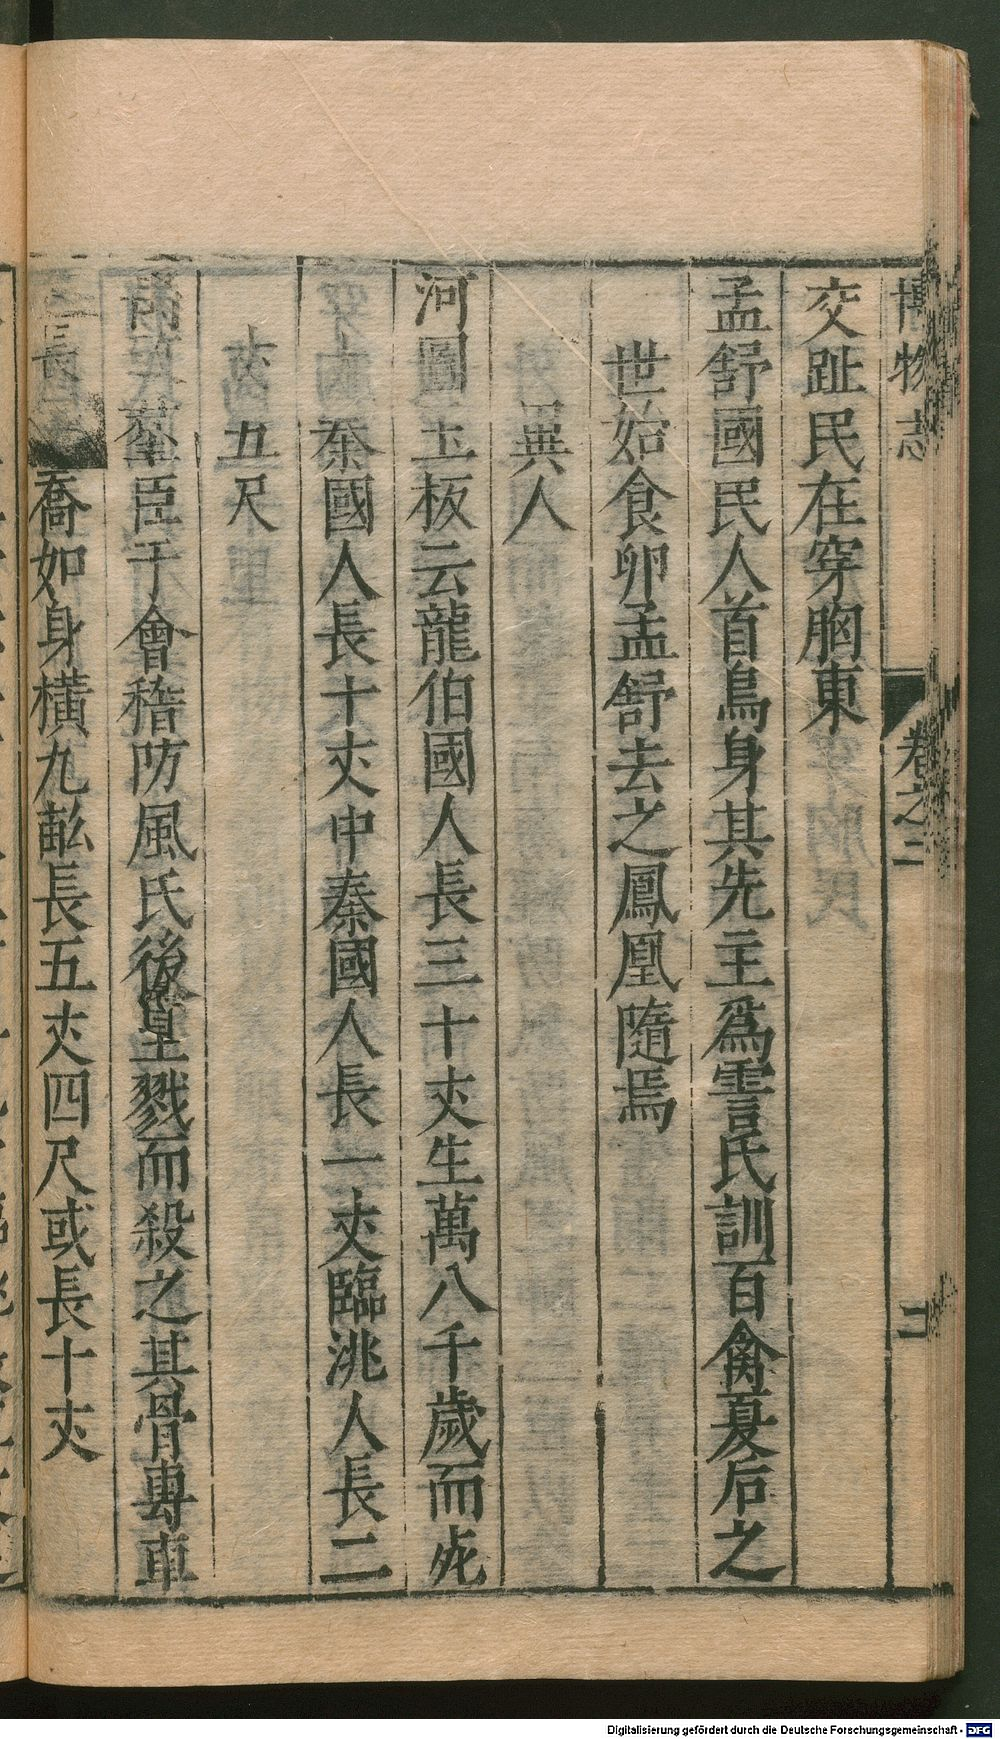 博物志 卷之二 二
交趾民在穿胸東
孟舒國民人首鳥身其先主爲霅氏訓百禽夏后之
世始食卵孟舒去之鳳凰隨焉
異人
河圖玉板云龍伯國人長三十丈生萬八千歲而死
秦國人長十丈中秦國人長一丈臨洮人長二
丈五尺
禹致群臣于會稽防風氏後至戮而殺之其骨專車
長喬如身橫九畝長五丈四尺或長十丈
Digitalisierung gefördert durch die Deutsche Forschungsgemeinschaft - DFG